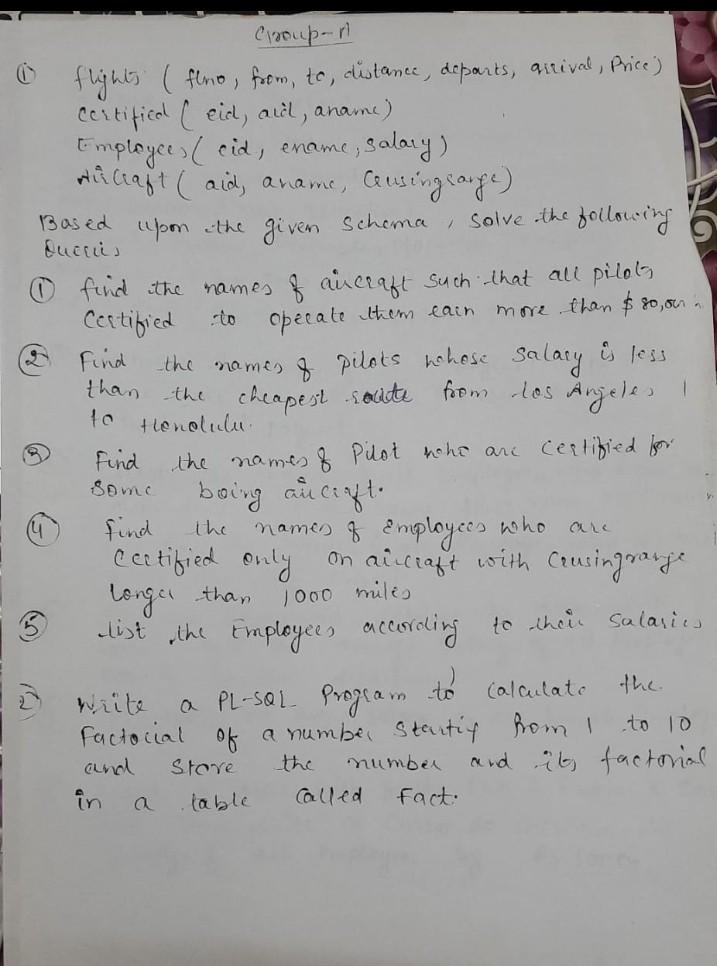 Group-A
① flights ( flno, from, to, distance, departs, arrival, Price)
Certified ( eid, aid, aname)
Employees ( eid, ename, salary)
Aircraft ( aid, aname, Crusingrange)
Based upon the given Schema, solve the following
Queries
① find the names of aircraft such that all pilots
Certified to operate them earn more than $ 80,000
② Find the names of pilots whose salary is less
than the cheapest route from Los Angeles
to Honolulu.
③ Find the names of Pilot who are certified for
Some boing aircraft.
④ find the names of Employees who are
Certified only on aircraft with Crusingrange
Longer than 1000 miles
⑤ list the Employees according to their Salaries
② Write a PL-SQL Program to Calculate the
Factorial of a number Startig from 1 to 10
and Store the number and its factorial
in a table Called Fact.